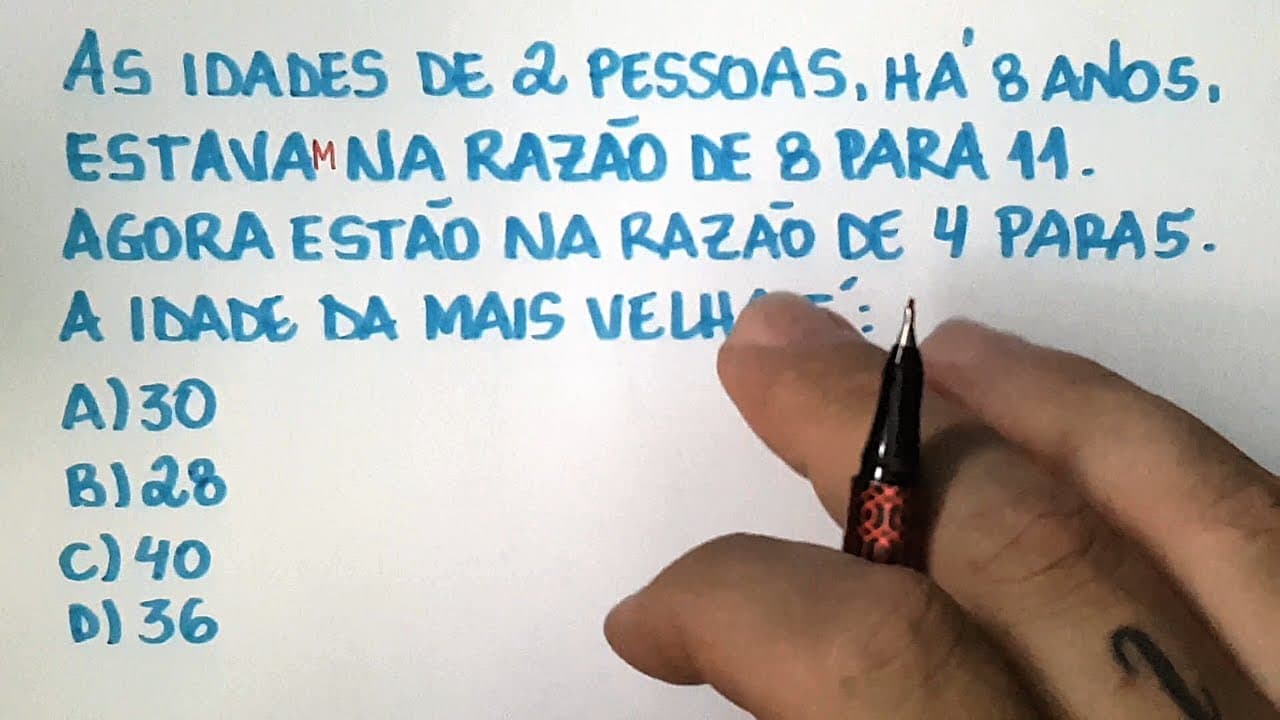 AS IDADES DE 2 PESSOAS, HÁ 8 ANOS,
ESTAVAM NA RAZÃO DE 8 PARA 11.
AGORA ESTÃO NA RAZÃO DE 4 PARA 5.
A IDADE DA MAIS VELHA É:
A) 30
B) 28
C) 40
D) 36